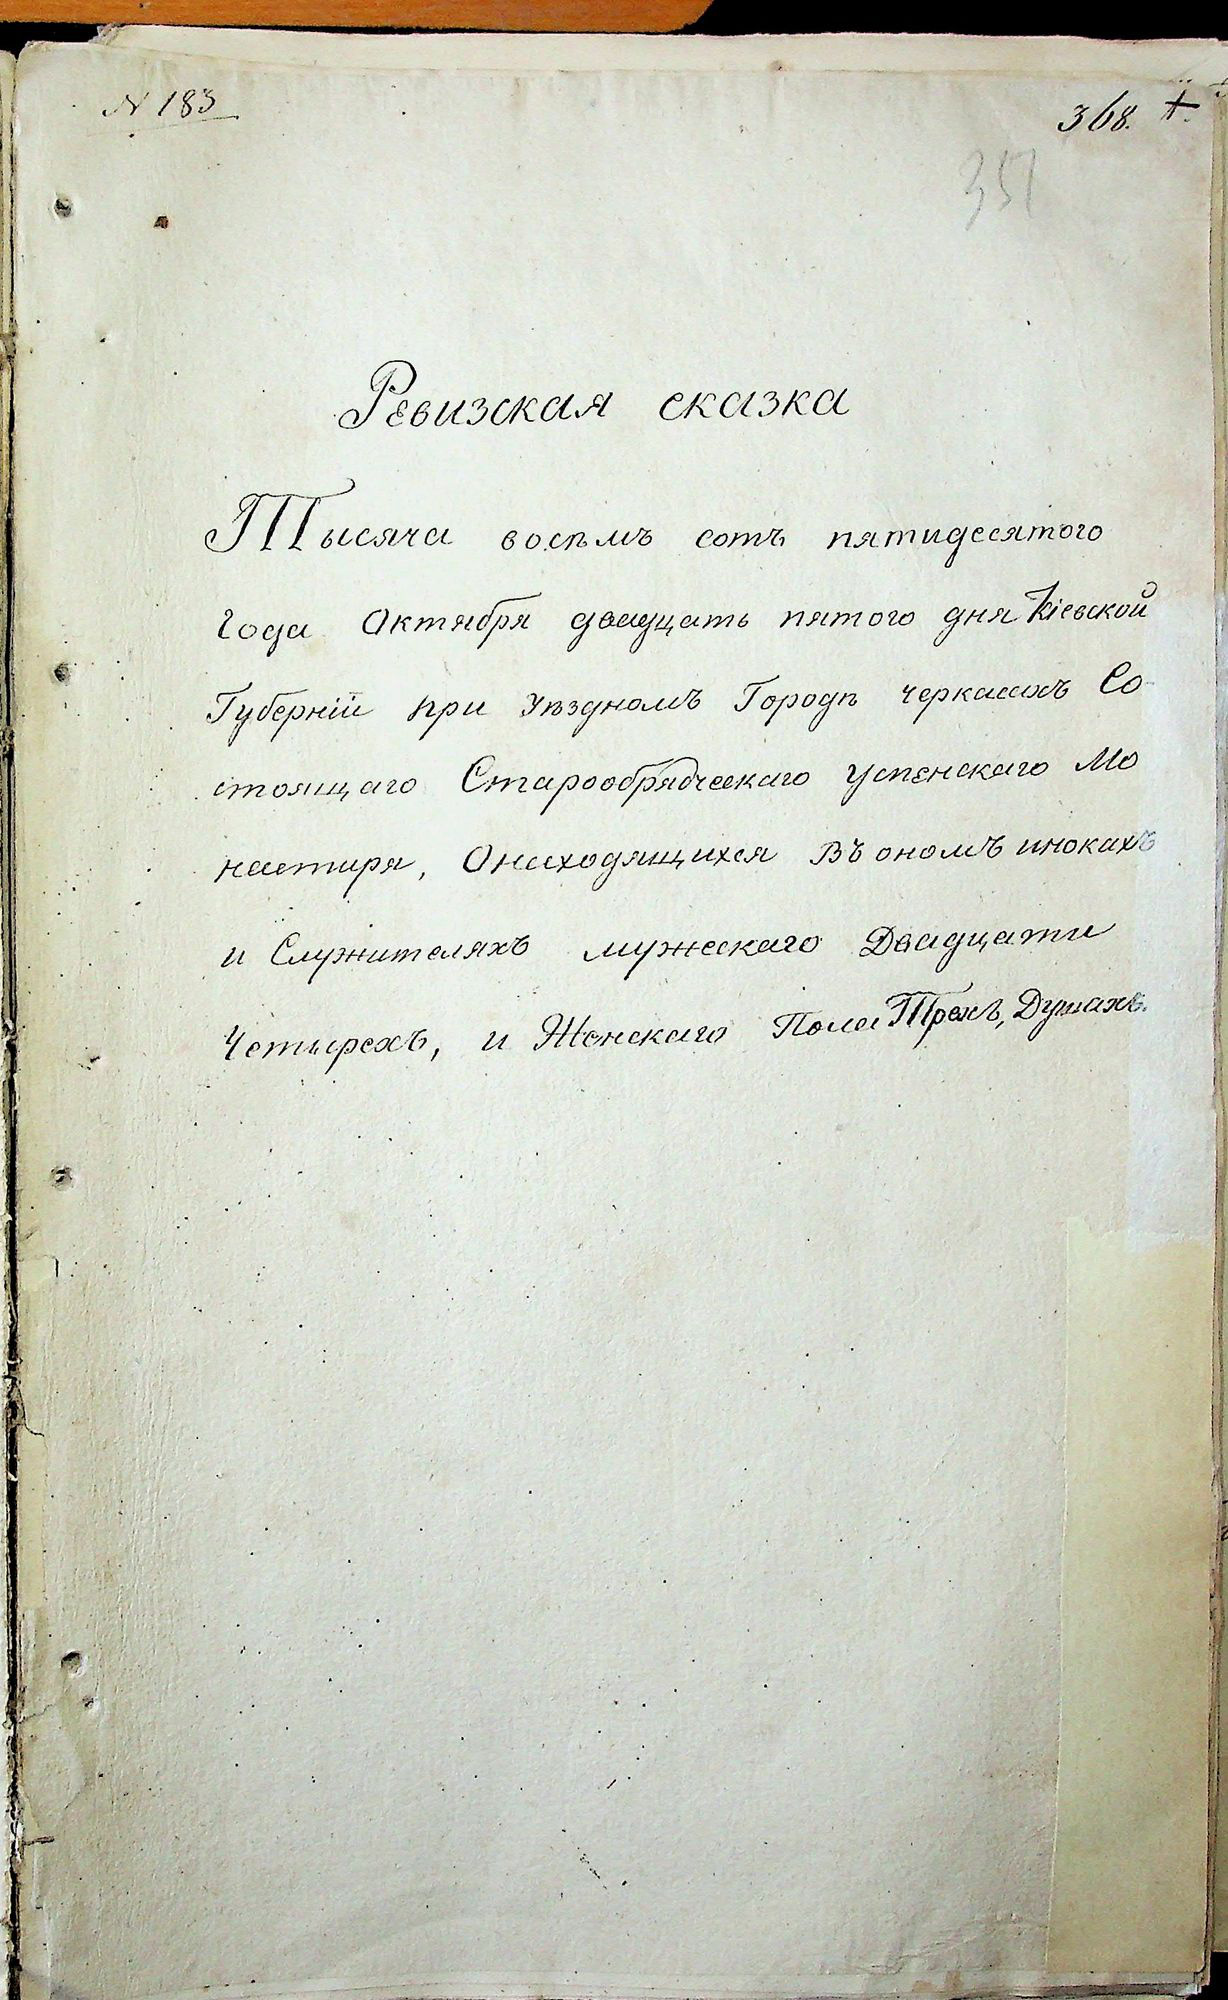 N 183
368. +
357
Ревизская сказка
Тысяча восемъ сотъ пятидесятого
Года Октября двадцать пятого дня Кіевской
Губерніи при Уѣздномъ Городѣ черкасахъ Со
стоящаго Старообрядческаго успенскаго Мо
настиря, Онаходящихся Въ ономъ инокахъ
и Служителяхъ мужескаго Двадцати
Четырехъ, и Женскаго Пола Трехъ, Душахъ.